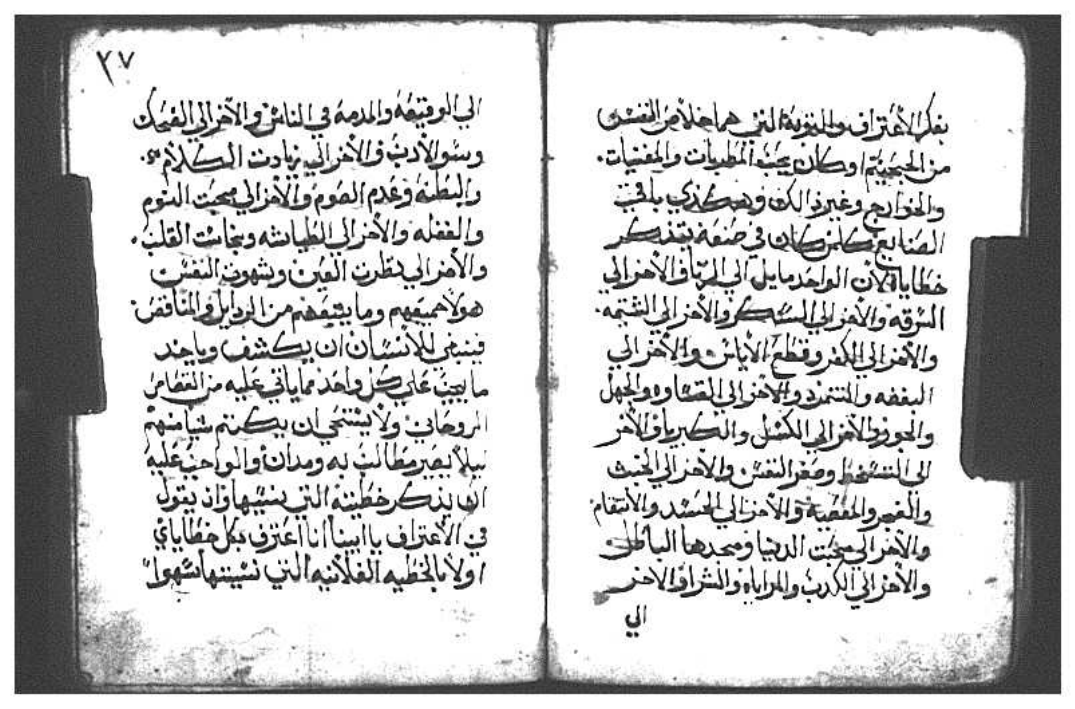 بفكر الأعتراف والتوبة التي هما خلاص النفس
من الجحيم او كان يحب المطربات والمغنيات.
والخوارج وغير ذالك وهكذي باقي
الصنايع كلمن كان في صنعة يتذكر
خطاياه لأن الواحد مايل الي الزنا والأخر الي
السرقه والأخر الي السكر والأخر الي الشتيمه.
والأخر الي الكفر وقطع الأياس والأخر الي
البغضه والتمرد والأخر الي القساوه والجهل
والجور والأخر الي الكسل والكبريا والأخر
الى التسخط وصغر النفس والأخر الي الخبث
والغير والأخر الي الحسد والأنتقام
والأخر الي محبت الدنيا ومجدها الباطل
والأخر الي الكدب والمراياه والشر والاخر
الي
٢٧
الي الوقيعه والمدمه في الناس والأخر الي الضحك
وسو الأدب والأخر الي زيادت الكلام
والبطنه وعدم الصوم والأخر الي محبت النوم
والغفله والأخر الي الطياشه ونجاست القلب.
والأخر الي نظرت العين وشهوت النفس
هولا جميعهم وما يتبعهم من الردايل والمناقص
فينبغي للأنسان ان يكشف وياخد
ما يجب علي كل واحد مما ياتي عليه من القصاص
الروحاني ولا يستحي ان يكتم شيا منهم
ليلا يصير مطالب به ومدان والواجب عليه
ان يذكر خطيته التي ينسيها وان يقول
في الأعتراف يا ابينا أنا اعترف بكل خطاياي
اولا بالخطيه الفلانيه التي نسيتها سهوا